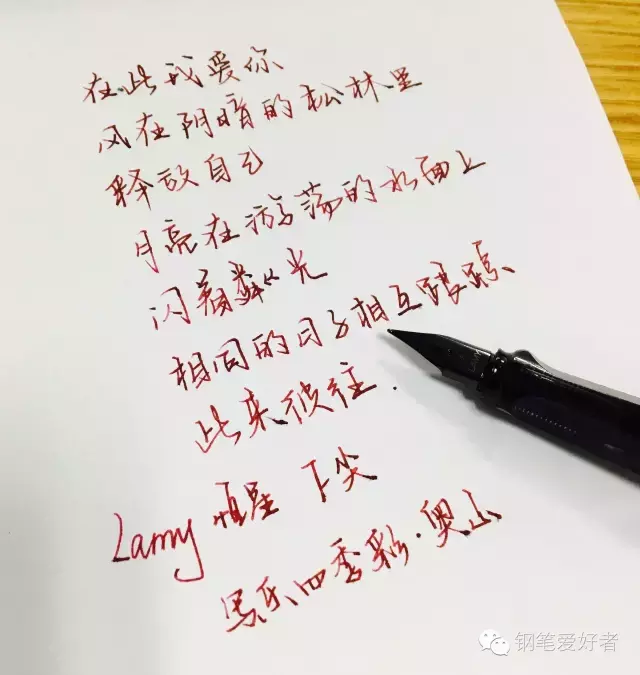 在此我爱你
风在阴暗的松林里
释放自己
月亮在游荡的水面上
闪着磷光
相同的日子相互踏踪
此来彼往.
Lamy 恒星 F尖
写乐四季彩·奥山
钢笔爱好者